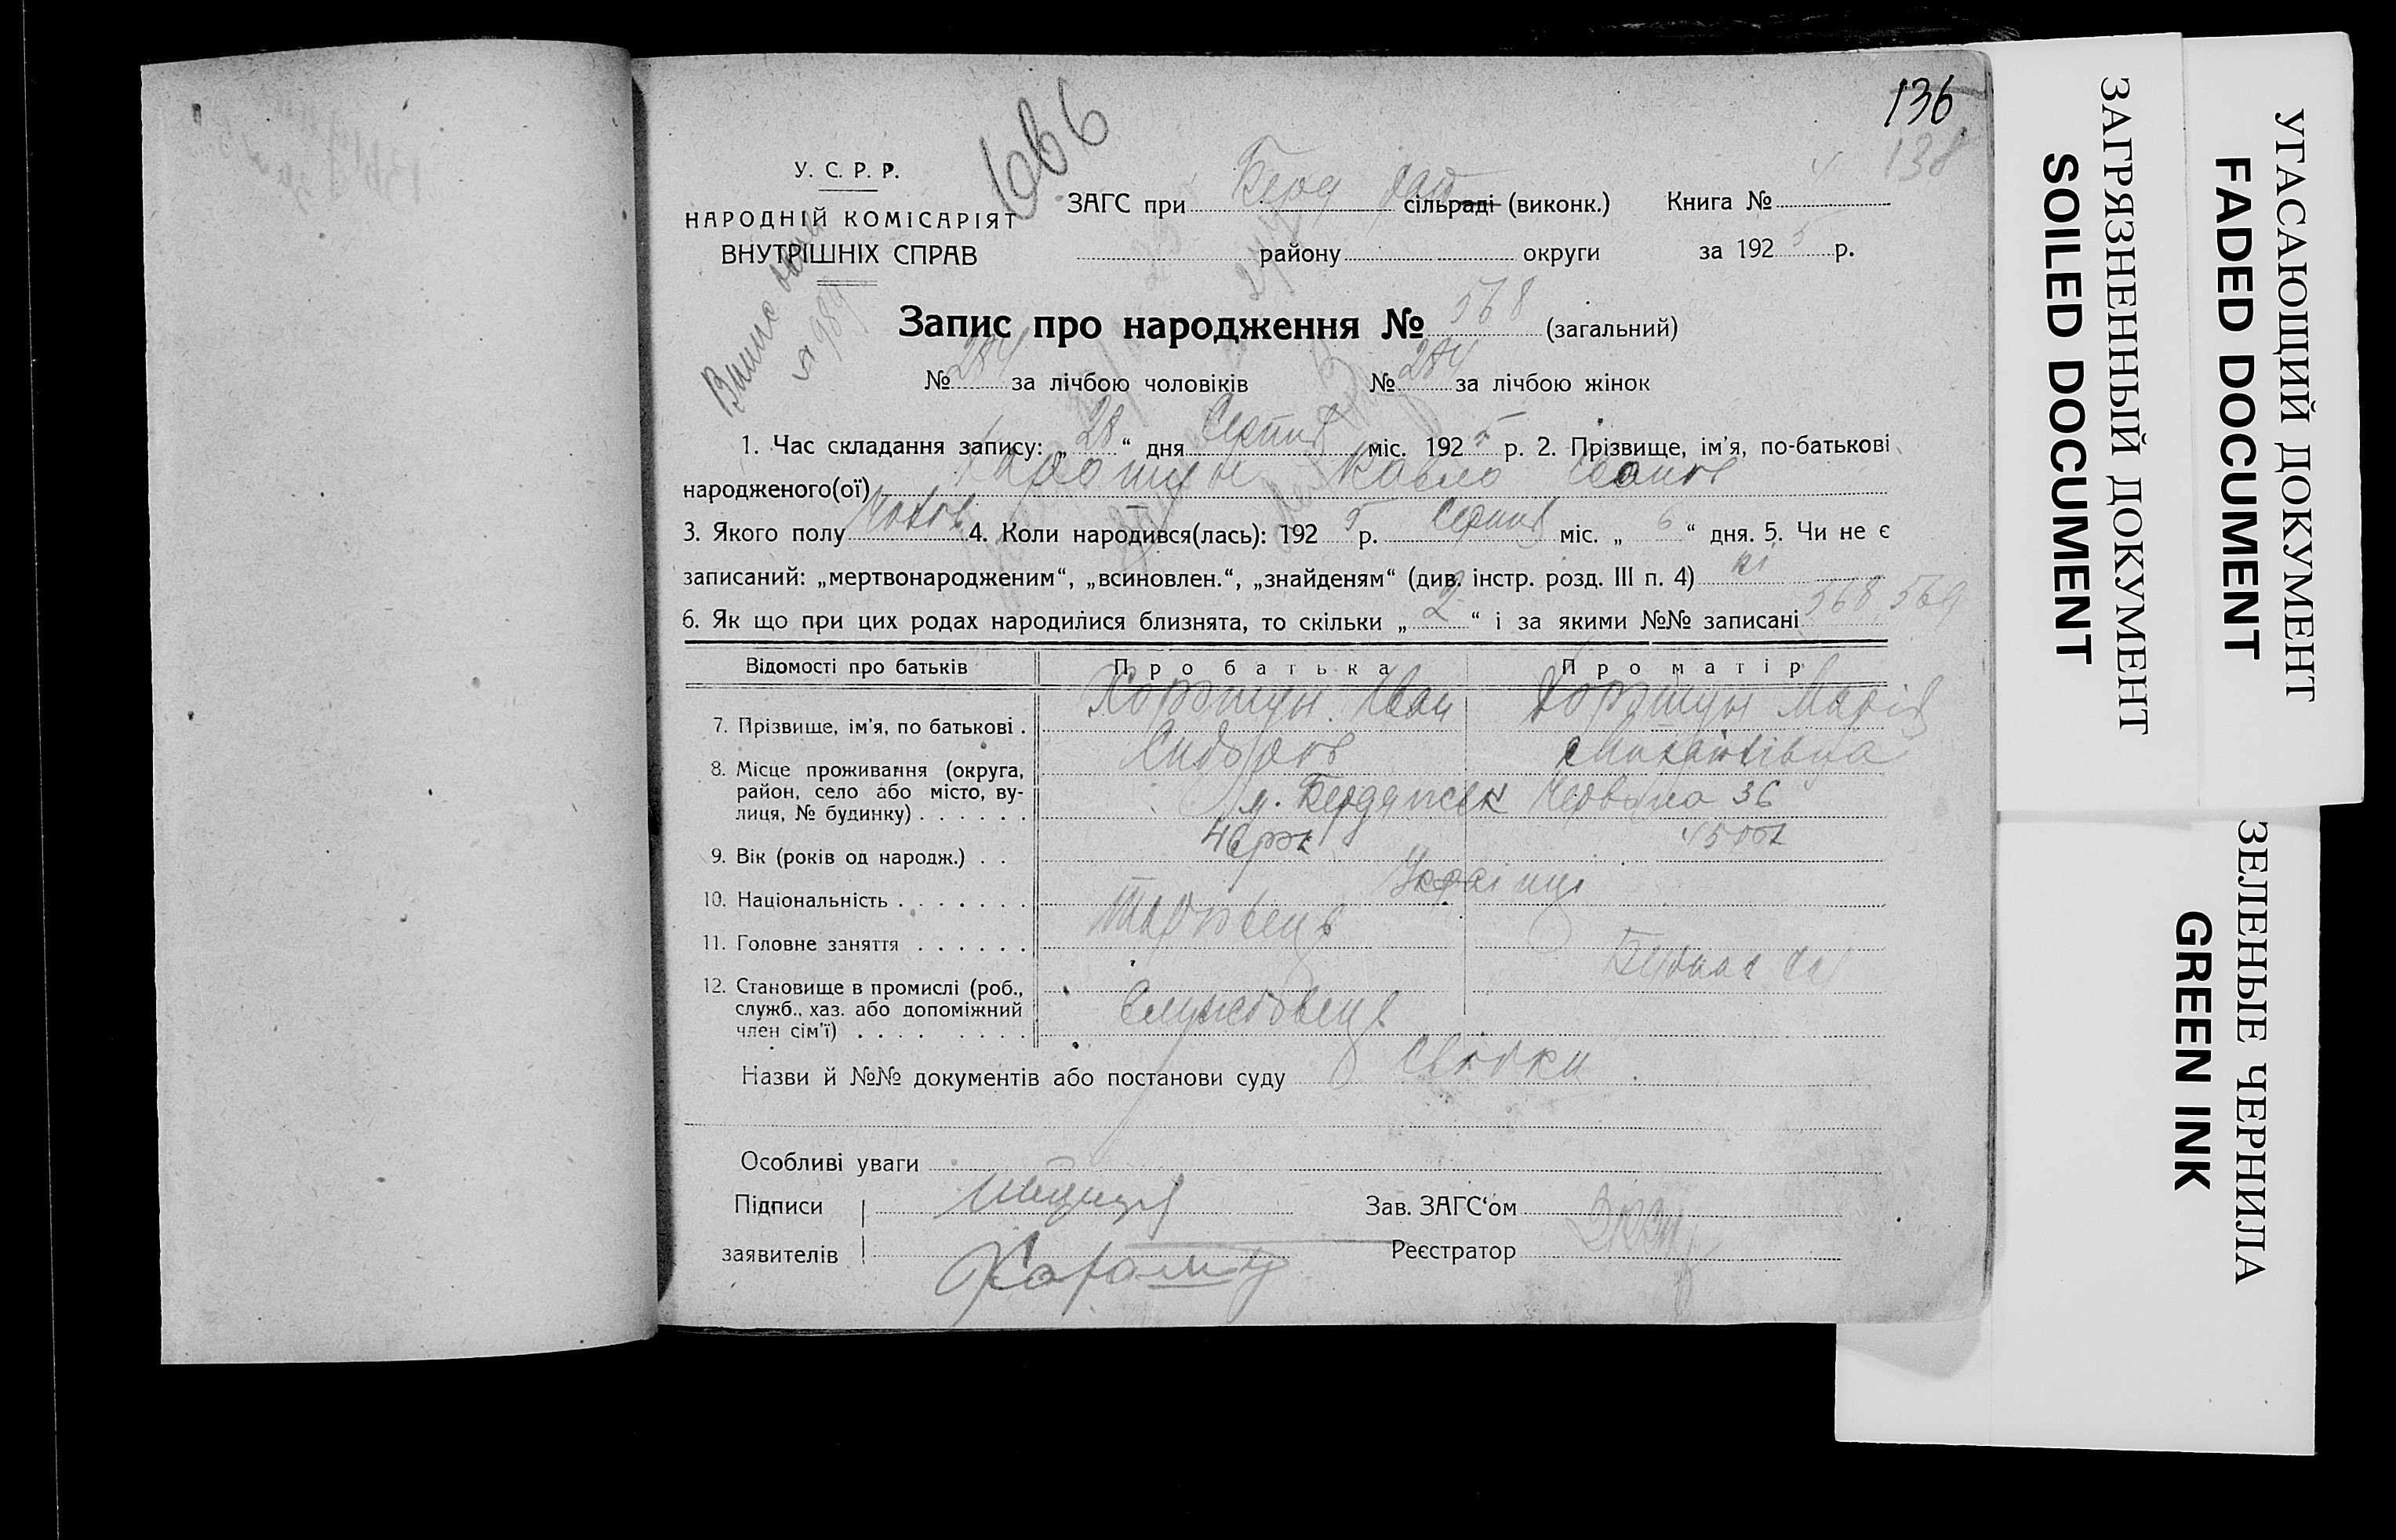 136
138
666
У. С. Р. Р.
НАРОДНІЙ КОМІСАРІЯТ
ВНУТРІШНІХ СПРАВ
ЗАГС при Берд сільраді (виконк.) Книга № 4
району округи за 1925 р.
Запис про народження № 568 (загальний)
№ 284 за лічбою чоловіків № 284 за лічбою жінок
1. Час складання запису: „28“ дня Серпня міс. 1925 р. 2. Прізвище, ім'я, по-батькові
народженого(ої) Павло Іванов
3. Якого полу 4. Коли народився(лась): 1925 р. Серпня міс. „6“ дня. 5. Чи не є
записаний: „мертвонародженим“, „всиновлен.“, „знайденям“ (див. інстр. розд. III п. 4) ні
6. Як що при цих родах народилися близнята, то скільки „2“ і за якими №№ записані 568, 569
Відомості про батьків Про батька Про матір
7. Прізвище, ім'я, по батькові . Іван Марія
Сидоров
8. Місце проживання (округа, район, село або місто, вулиця, № будинку) . . . . . . м. Бердянськ Червона 36
9. Вік (років од народж.) . . 46 рок 45 рок
10. Національність . . . . . . . Українці
11. Головне заняття . . . . . .
12. Становище в промислі (роб., служб., хаз. або допоміжний член сім'ї) . . . . . . . . Службовець
Назви й №№ документів або постанови суду Свідки
Особливі уваги
Підписи Зав. ЗАГС'ом
заявителів Реєстратор
УГАСАЮЩИЙ ДОКУМЕНТ
FADED DOCUMENT
ЗАГРЯЗНЕННЫЙ ДОКУМЕНТ
SOILED DOCUMENT
ЗЕЛЕНЫЕ ЧЕРНИЛА
GREEN INK